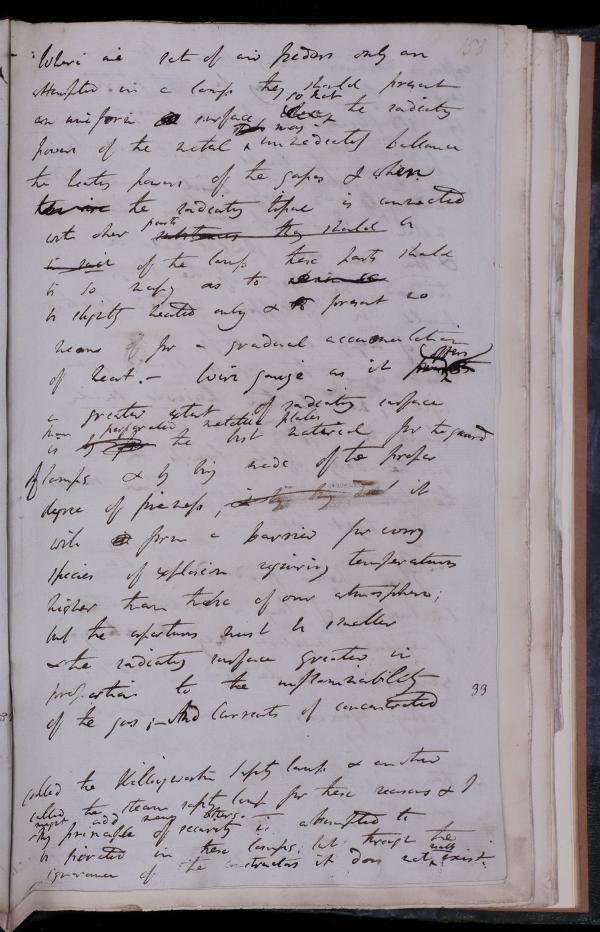 158
Where sets of air feeders only are
attempted in a lamp they should present
an uniform surface so that the radiating
powers of the metal may immediately ballance
the heating powers of the gases & when
the radiating tissue is connected
with other parts substances they should be
of the lamp these parts should
be so as to
be slightly heated only & to present no
means of for a gradual accumulation
of heat. – Wire gauze as it offers
a greater extent of radiating surface
than perforated metallic plates
is the best material for the guard
of lamps & by being made of the proper
degree of fineness, it
will form a barrier for every
species of explosion requiring temperatures
higher than those of our atmosphere;
but the apertures must be smaller
& the radiating surface greater in
proportion to the inflammability
33
of the gas; – And Currents of concentrated
called the Killingworth Safety lamp & another
called the steam safety lamp for these reasons & I
might add many others.
The principle of security is attempted to
be pirated in these lamps; but through the
ignorance of the constructors it does not really exist.